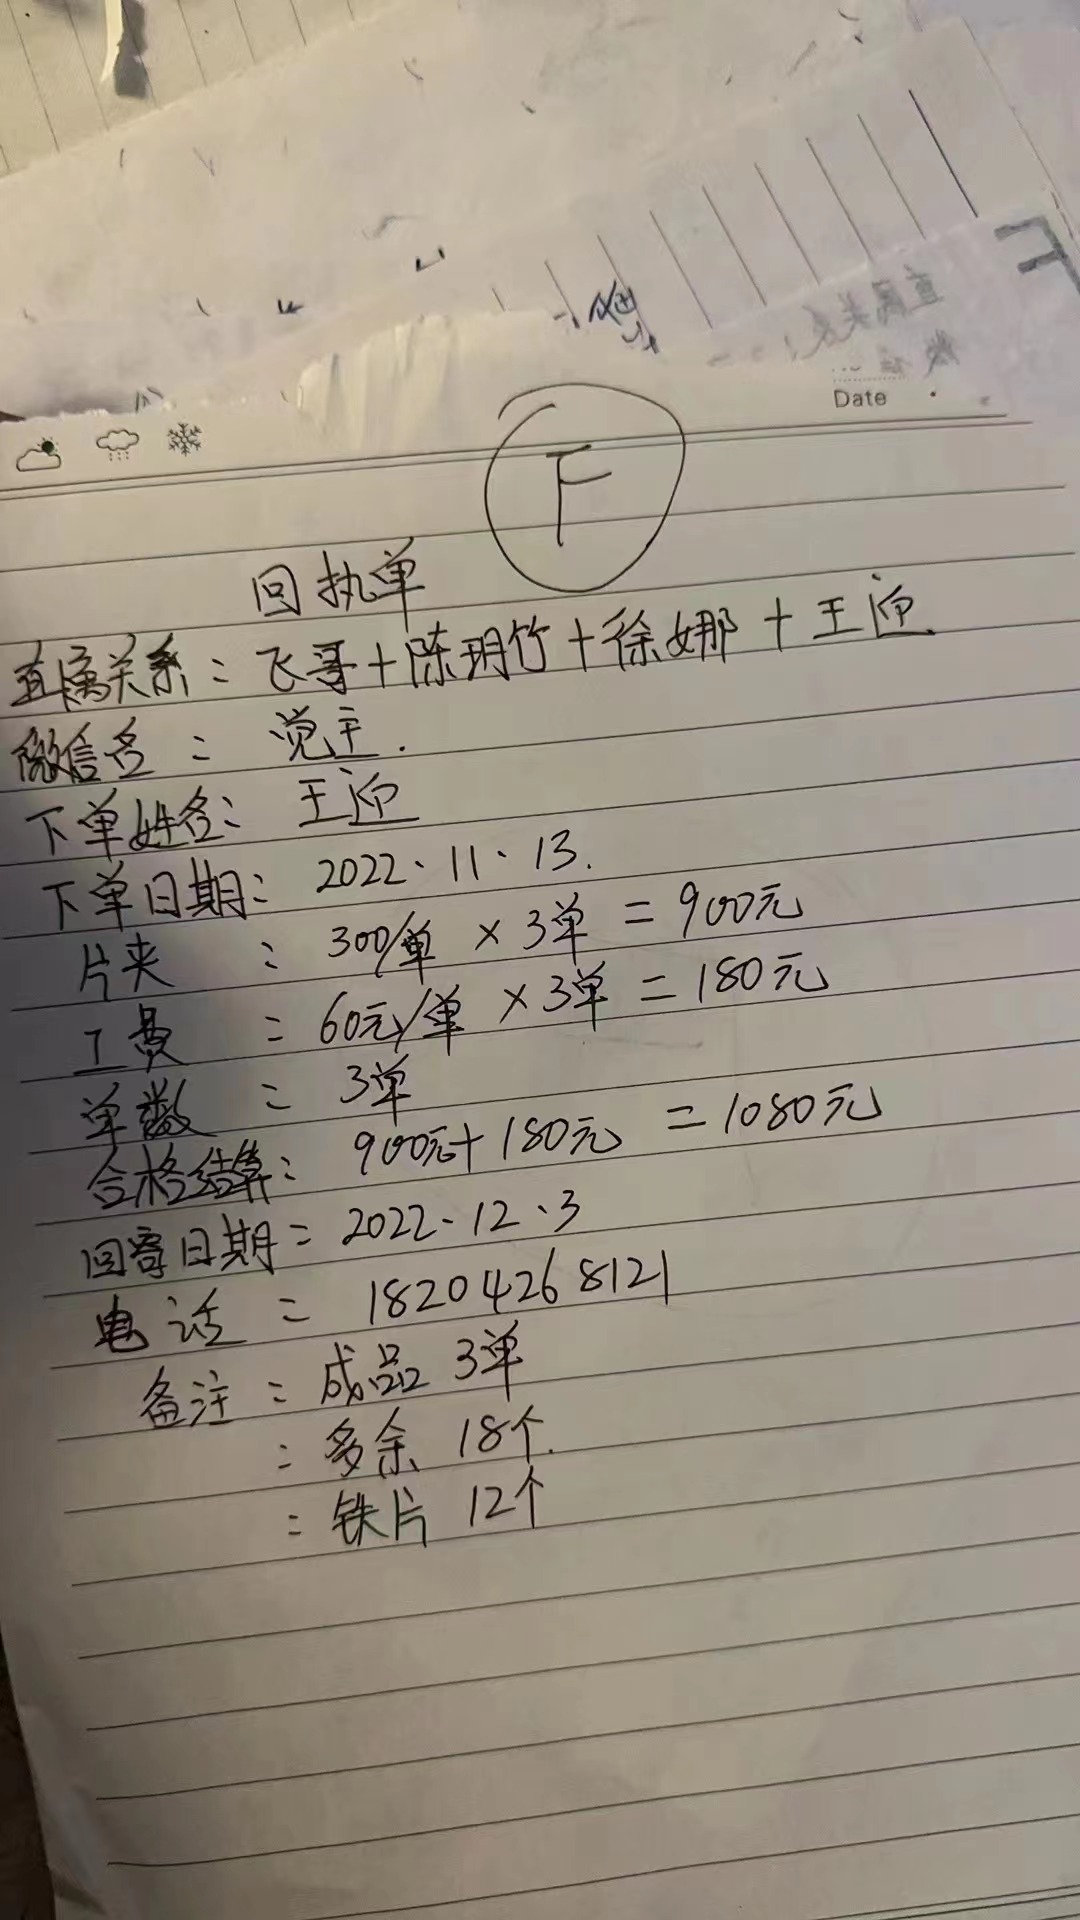 Date
F
回执单
直属关系：飞哥+陈玥竹+徐娜+王迎
微信名：觉主.
下单姓名：王迎
下单日期：2022.11.13.
片夹：300/单×3单=900元
工费：60元/单×3单=180元
单数：3单
合格结算：900元+180元=1080元
回寄日期：2022.12.3
电话：18204268121
备注：成品 3单
：多余 18个.
：铁片 12个